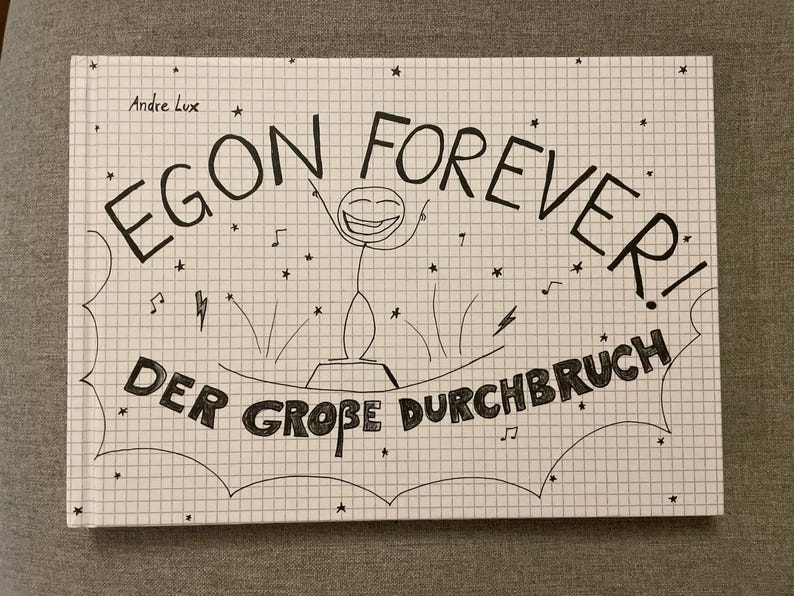 Andre Lux
EGON FOREVER!
DER GROßE DURCHBRUCH